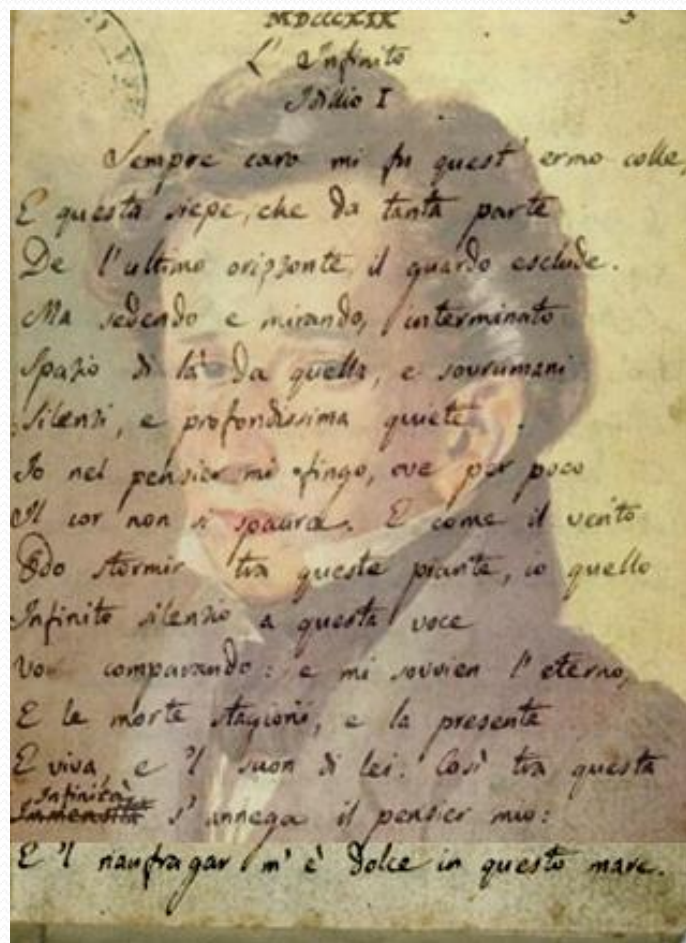 MDCCCXIX
L' Infinito
Idillio I
Sempre caro mi fu quest' ermo colle,
E questa siepe, che da tanta parte
De l'ultimo orizzonte il guardo esclude.
Ma sedendo e mirando, interminato
Spazio di là da quella, e sovrumani
Silenzi, e profondissima quiete
Io nel pensier mi fingo, ove per poco
Il cor non si spaura. E come il vento
Odo stormir tra queste piante, io quello
Infinito silenzio a questa voce
Vo comparando: e mi sovvien l'eterno,
E le morte stagioni, e la presente
E viva, e 'l suon di lei. Così tra questa
Infinità
Immensità s'annega il pensier mio:
E 'l naufragar m'è dolce in questo mare.